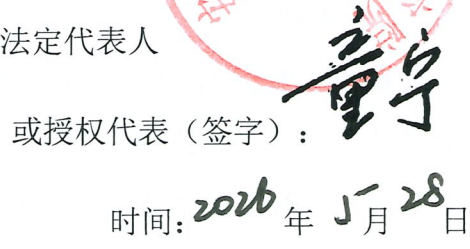 法定代表人
或授权代表（签字）：童宁
时间:2026年5月28日